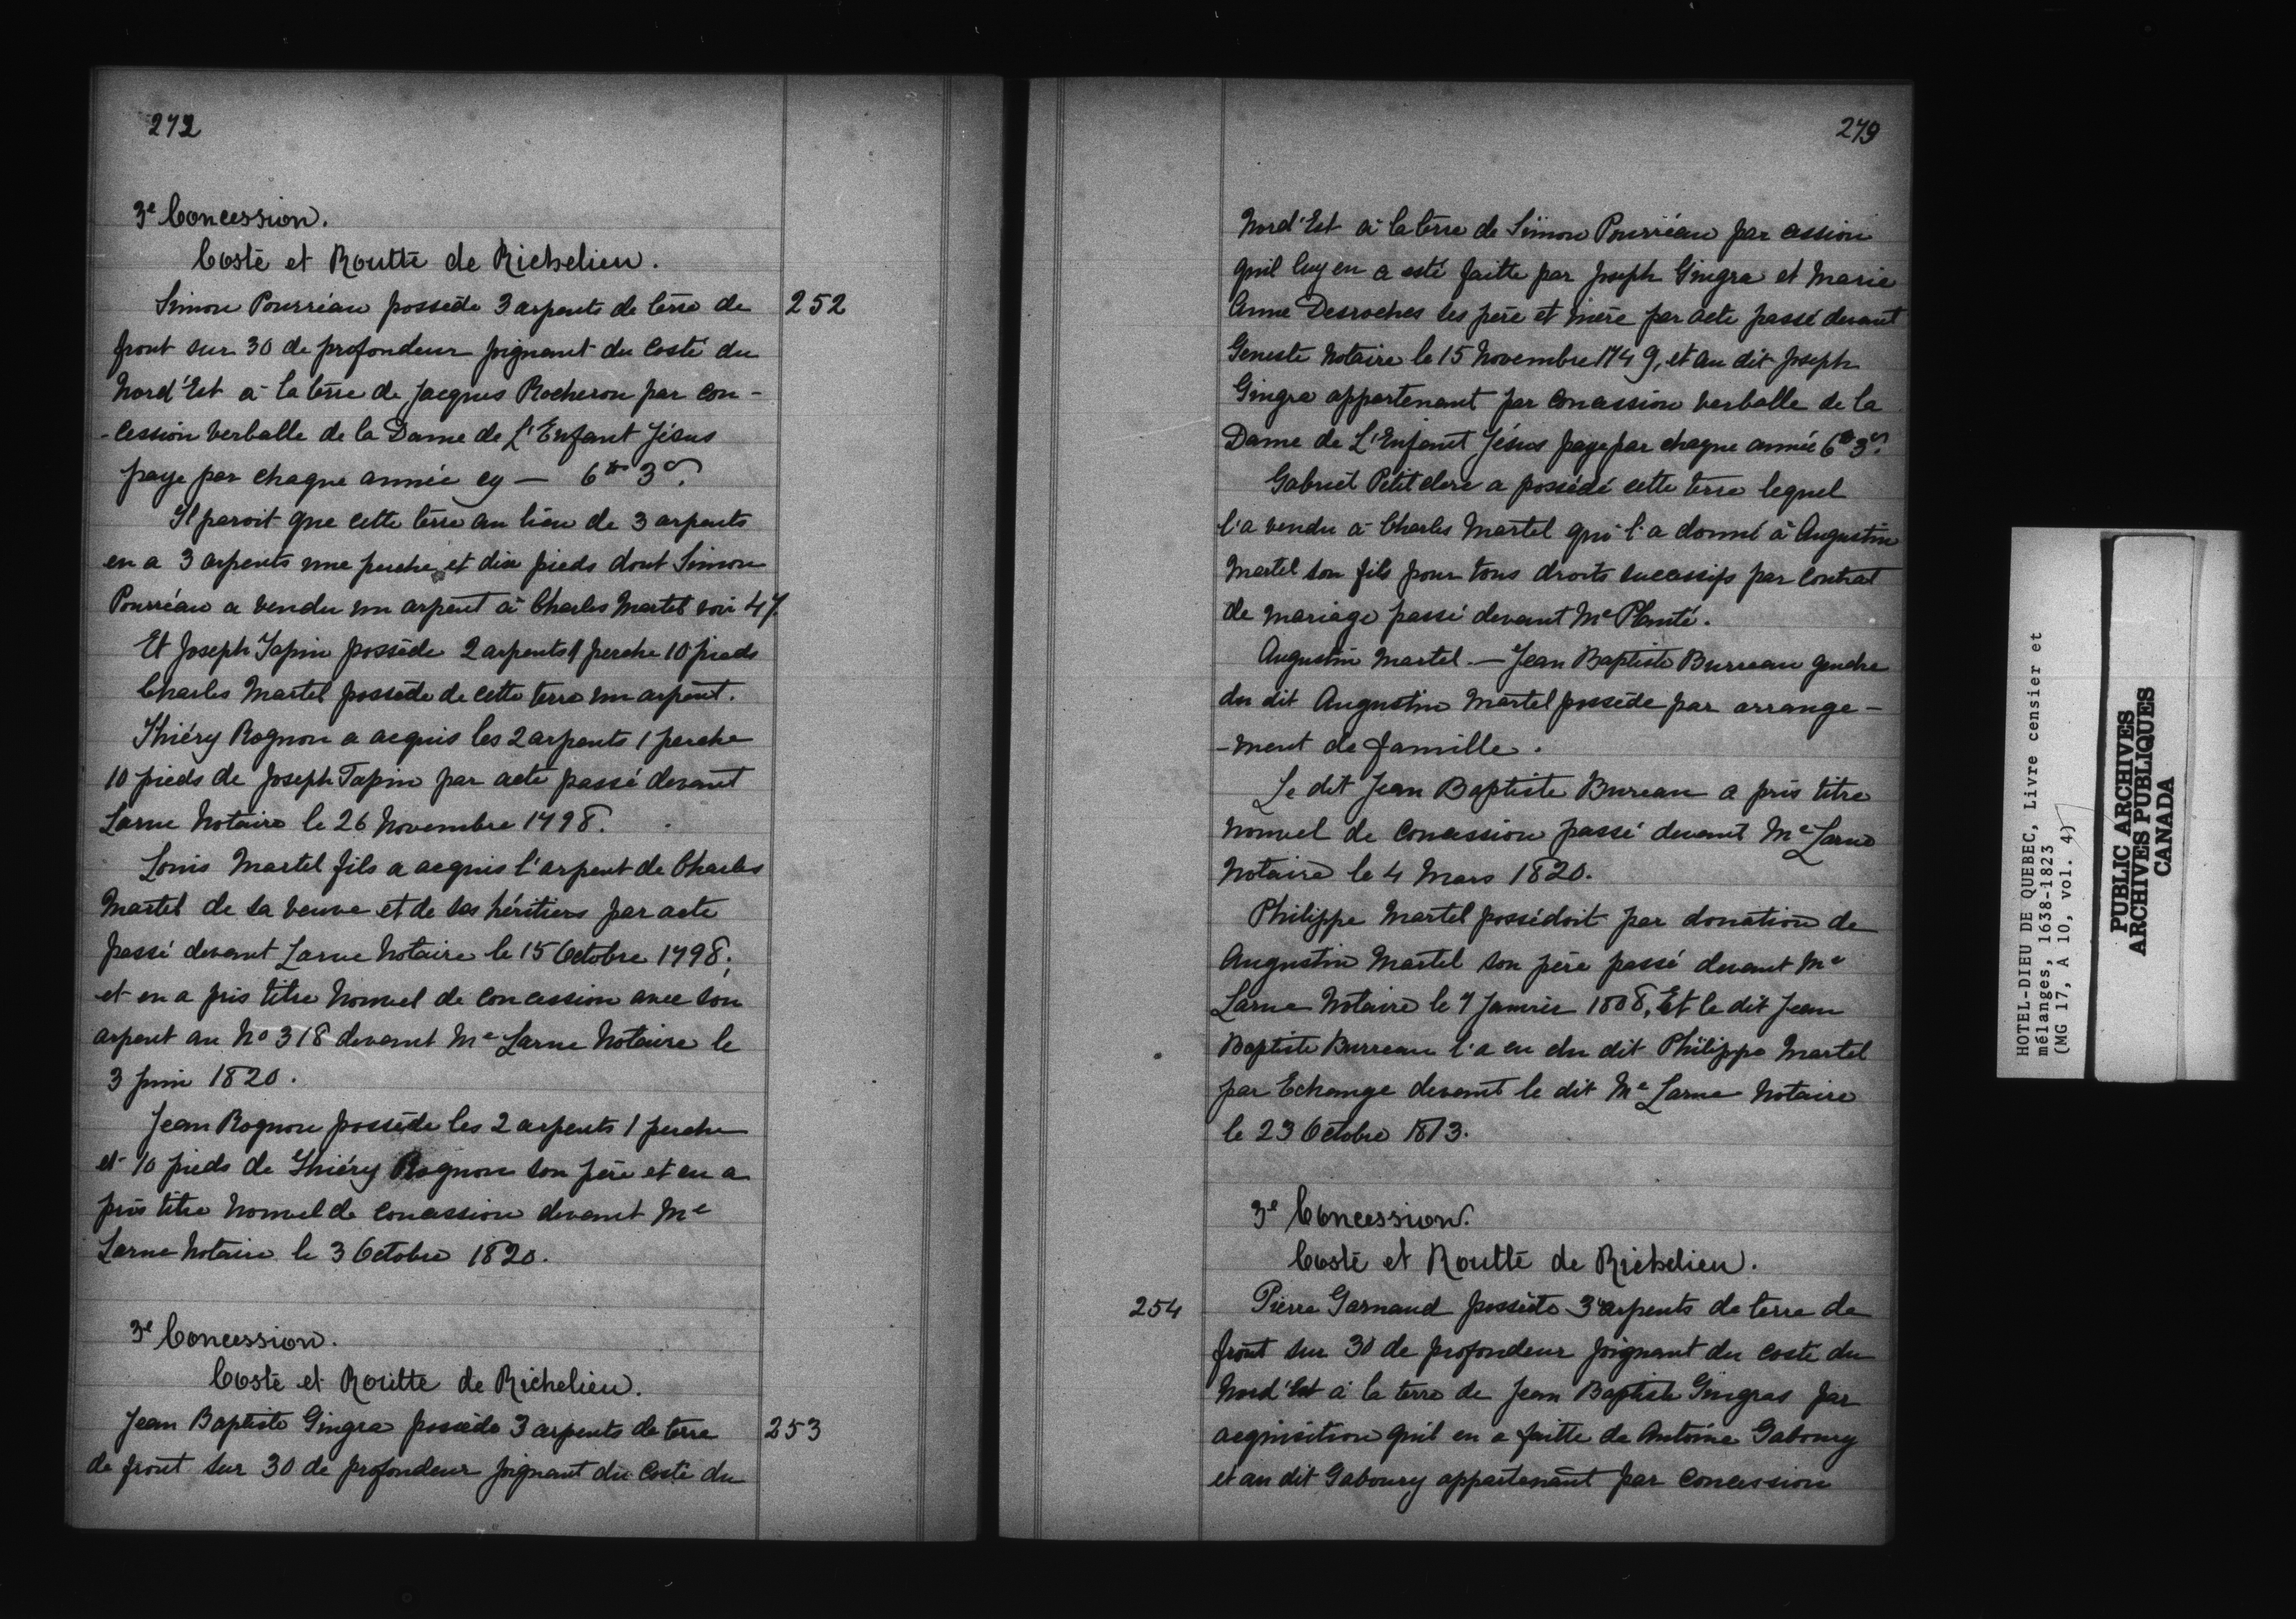 272
3e Concession.
Costé et Routte de Richelieu.
Simon Pourréau possède 3 arpents de terre de
252
front sur 30 de profondeur joignant du Costé du
Nord'Est à la terre de Jacques Rocheron par con-
-cession verballe de la Dame de L'Enfant Jésus
paye par chaque année cy — 6tt 3s.
Il paroit que cette terre au lieu de 3 arpents
en a 3 arpents une perche et dix pieds dont Simon
Pourréau a vendu un arpent à Charles Martel voir 47
Et Joseph Tapin possède 2 arpents 1 perche 10 pieds
Charles Martel possède de cette terre un arpent.
Thiéry Rognon a acquis les 2 arpents 1 perche
10 pieds de Joseph Tapin par acte passé devant
Larue Notaire le 26 Novembre 1798.
Louis Martel fils a acquis l'arpent de Charles
Martel de sa veuve et de ses héritiers par acte
passé devant Larue Notaire le 15 Octobre 1798;
et en a pris titre Nouvel de concession avec son
arpent au No 318 devant Me Larue Notaire le
3 Juin 1820.
Jean Rognon possède les 2 arpents 1 perche
et 10 pieds de Thiéry Rognon son père et en a
pris titre Nouvel de concession devant Me
Larue Notaire le 3 Octobre 1820.
3e Concession.
Costé et Routte de Richelieu.
Jean Baptiste Gingra possède 3 arpents de terre
253
de front sur 30 de profondeur joignant du Costé du
273
Nord'Est à la terre de Simon Pourréau par cession
quil luy en a esté faitte par Joseph Gingra et Marie
Anne Desroches ses père et mère par acte passé devant
Geneste Notaire le 15 Novembre 1749, et au dit Joseph
Gingra appartenant par concession verballe de la
Dame de L'Enfant Jésus paye par chaque année 6tt 3s.
Gabriel Petitclerc a possédé cette terre lequel
l'a vendu à Charles Martel qui l'a donné à Augustin
Martel son fils pour tous droits sucessifs par Contrat
de Mariage passé devant Me Planté.
Augustin Martel. — Jean Baptiste Burreau gendre
du dit Augustin Martel possède par arrange-
-ment de famille.
Le dit Jean Baptiste Bureau a pris titre
Nouvel de Concession passé devant Me Larue
Notaire le 4 Mars 1820.
Philippe Martel possédoit par donation de
Augustin Martel son père passé devant Me
Larue Notaire le 7 Janvier 1808, Et le dit Jean
Baptiste Burreau l'a eu du dit Philippe Martel
par Echange devant le dit Me Larue Notaire
le 23 Octobre 1813.
3e Concession.
Costé et Routté de Richelieu.
254
Pierre Garnaud possède 3 arpents de terre de
front sur 30 de profondeur joignant du costé du
Nord'Est à la terre de Jean Baptiste Gingras par
acquisition quil en a faitte de Antoine Gaboury
et au dit Gaboury appartenant par Concession
HOTEL-DIEU DE QUEBEC, Livre censier et
mélanges, 1638-1823
(MG 17, A 10, vol. 4)
PUBLIC ARCHIVES
ARCHIVES PUBLIQUES
CANADA